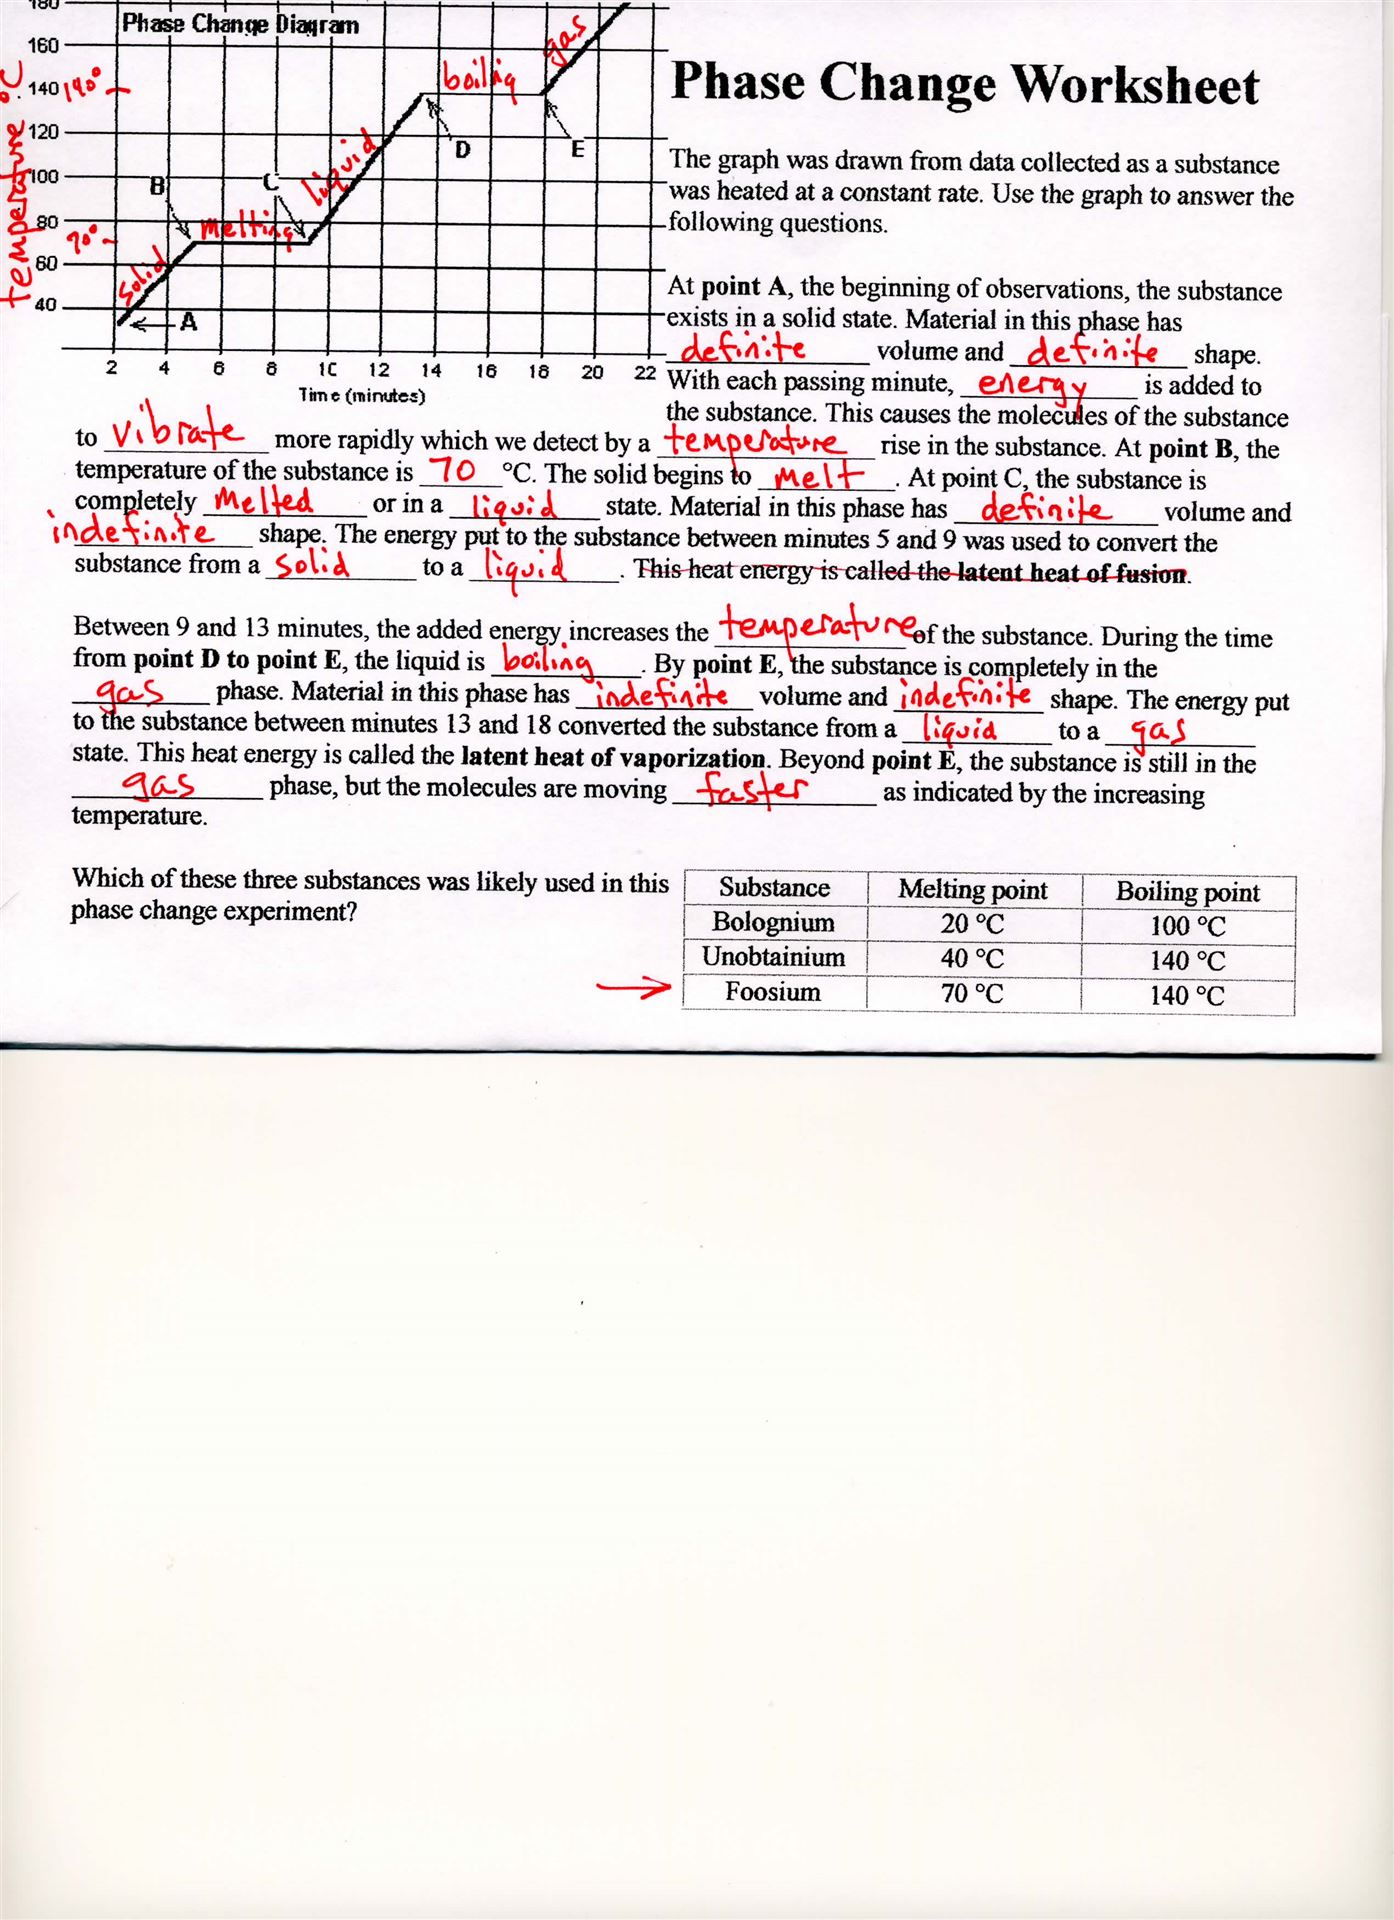 180
Phase Change Diagram
160
gas
°C
140 140°
boiling
Phase Change Worksheet
temperature
120
D
E
liquid
The graph was drawn from data collected as a substance
was heated at a constant rate. Use the graph to answer the
following questions.
100
B
C
80
melting
70°
60
solid
40
A
2 4 6 8 10 12 14 16 18 20 22
Time (minutes)
At point A, the beginning of observations, the substance
exists in a solid state. Material in this phase has
definite volume and definite shape.
With each passing minute, energy is added to
the substance. This causes the molecules of the substance
to vibrate more rapidly which we detect by a temperature rise in the substance. At point B, the
temperature of the substance is 70 °C. The solid begins to melt. At point C, the substance is
completely Melted or in a liquid state. Material in this phase has definite volume and
indefinite shape. The energy put to the substance between minutes 5 and 9 was used to convert the
substance from a solid to a liquid. This heat energy is called the latent heat of fusion.
Between 9 and 13 minutes, the added energy increases the temperature of the substance. During the time
from point D to point E, the liquid is boiling. By point E, the substance is completely in the
gas phase. Material in this phase has indefinite volume and indefinite shape. The energy put
to the substance between minutes 13 and 18 converted the substance from a liquid to a gas
state. This heat energy is called the latent heat of vaporization. Beyond point E, the substance is still in the
gas phase, but the molecules are moving faster as indicated by the increasing
temperature.
Which of these three substances was likely used in this
phase change experiment?
Substance Melting point Boiling point
Bolognium 20 °C 100 °C
Unobtainium 40 °C 140 °C
Foosium 70 °C 140 °C